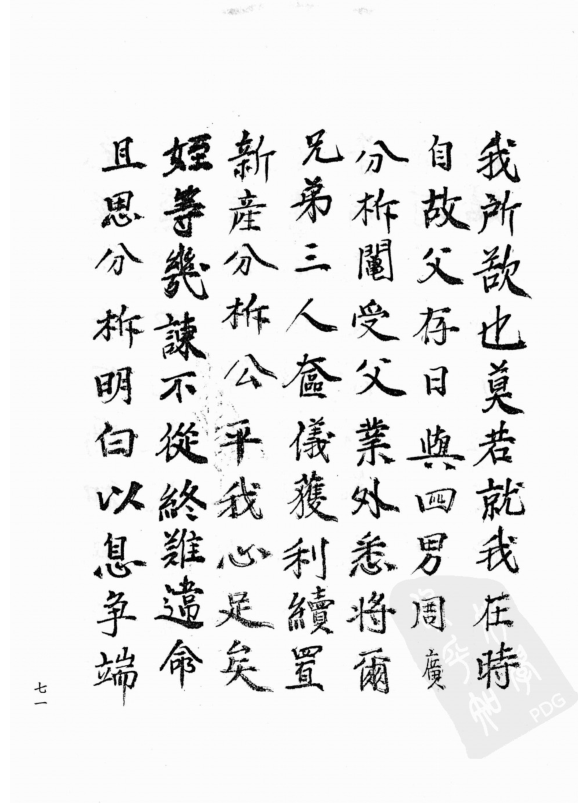 我所欲也莫若就我在時
自故父存日與四男周廣
分析鬮受父業外悉將爾
兄弟三人奩儀獲利續置
新產分析公平我心足矣
姪等幾諫不從終難違命
且思分析明白以息爭端
七一
PDG